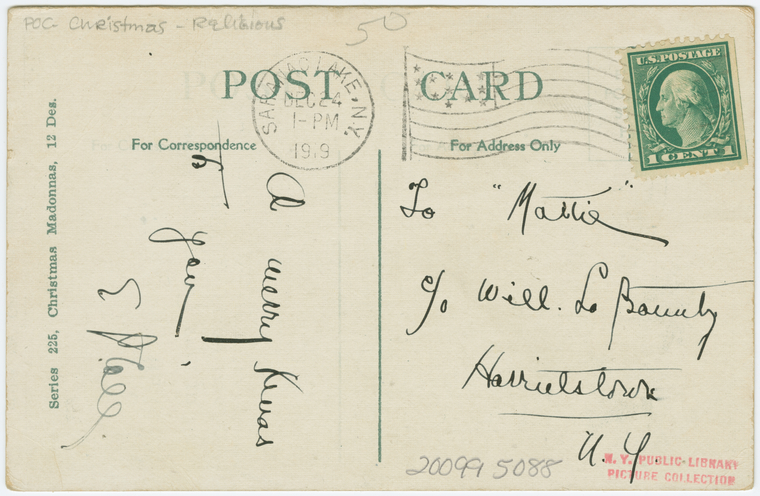 POC- Christmas - Religious
50
POST CARD
SARANAC LAKE, N.Y.
DEC 24
1-PM
1919
U.S. POSTAGE
1 CENT 1
Series 225, Christmas Madonnas, 12 Des.
For Correspondence
A merry Xmas
to
you!
For Address Only
To "Mattie"
c/o Will. La Bounty
Harrietstown
N.Y.
200995088
N.Y. PUBLIC LIBRARY
PICTURE COLLECTION